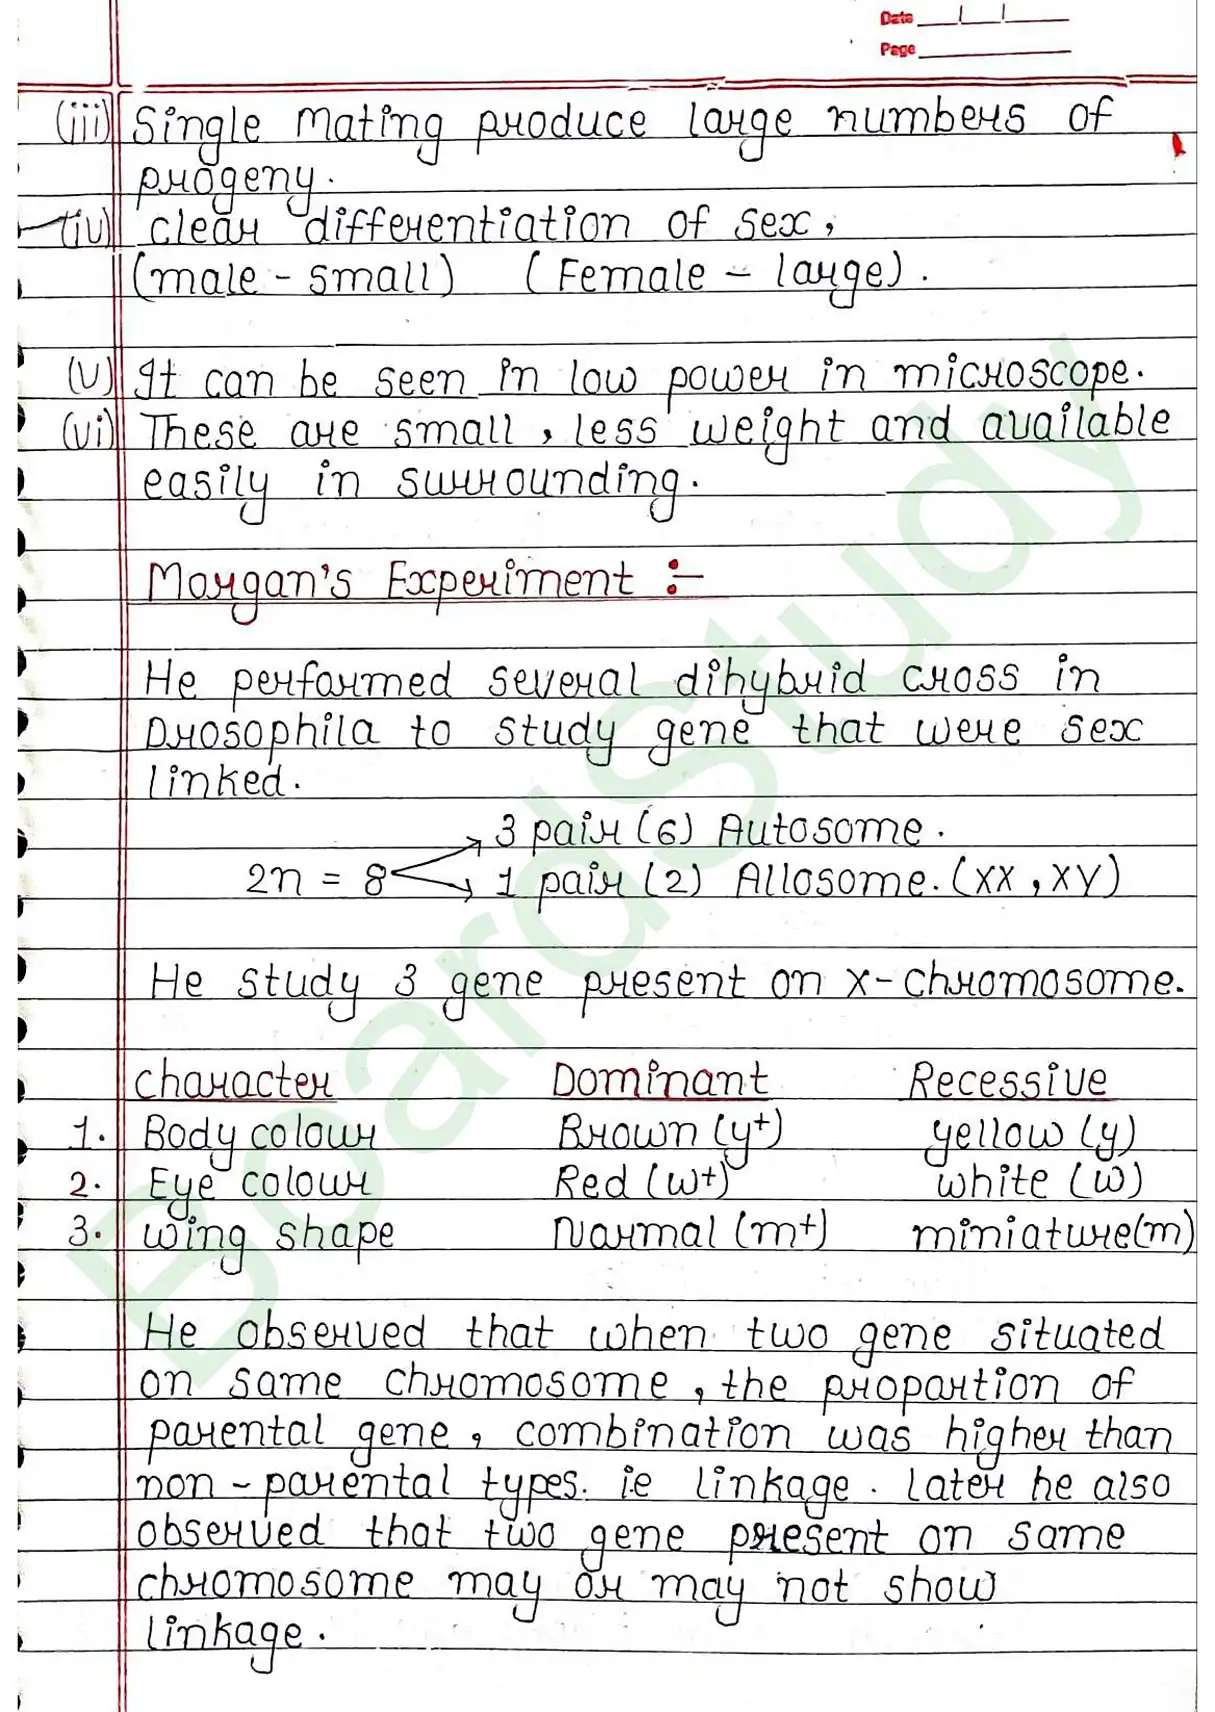 Date
Page
(iii) Single mating produce large numbers of
progeny.
(iv) clear differentiation of sex,
(male - small) (Female - large).
(v) It can be seen in low power in microscope.
(vi) These are small, less weight and available
easily in surrounding.
Morgan's Experiment :-
He performed several dihybrid cross in
Drosophila to study gene that were sex
linked.
3 pair (6) Autosome.
2n = 8
1 pair (2) Allosome. (XX, XY)
He study 3 gene present on X-chromosome.
character Dominant Recessive
1. Body colour Brown (y+) yellow (y)
2. Eye colour Red (w+) white (w)
3. wing shape Normal (m+) miniature(m)
He observed that when two gene situated
on same chromosome, the proportion of
parental gene, combination was higher than
non-parental types. i.e linkage. Later he also
observed that two gene present on same
chromosome may or may not show
linkage.
BoardStudy